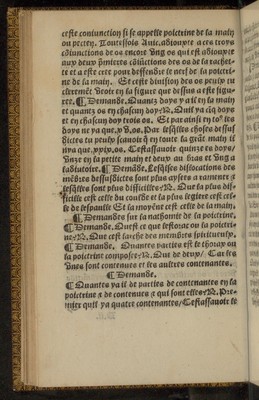 ceste coniunction si se appelle poictrine de la main
ou pecten. Toutesfois Auic. adiouxte a ces troys
cōiunctions de os encore vng os qui est adiouxte
aux deux pmieres cōiūctions des os de la rachet-
te et a este cree pour deffendre le nerf de la poictri-
ne de la main. Et ceste diuision des os peulx tu
clerement veoir en la figure que dessus a este figu-
ree. ¶ Demande. Quantz doys y a il en la main
et quantz os en chascun doy℟. Quil y a cīq doys
et en chascun doy trois os. Et par ainsi en to⁹ les
doys ne ya que .xv. os. Par lesq̄lles choses dessus
dictes tu peulx scauoir q̄ en toute la grāt main il
ya que .xxix. os. Cestassauoir quinze es doys/
vnze en la petite main et deux au bras et vng a
ladiutoire. ¶ Demāde. Lesq̄lles dislocations des
mēbres dessusdictes sont plus aysees a ramener ⁊
lesq̄lles sont plus difficilles℟. Que la plus dif-
ficille est celle du couste et la plus legiere est cel-
le de lespaulle Et la moyenne est celle de la main.
¶ Demandes sur la nathomie de la poictrine.
¶ Demande. Quest ce que lestorax ou la poictri-
ne℟. Que cest larche des membres spirituelz.
¶ Demande. Quantes parties est le thorax ou
la poictrine composee℟. Que de deux/ Car les
vnes sont contenues et les aultres contenantes.
¶ Demande.
¶ Quantes ya il de parties de contenantes en la
poictrine ⁊ de contenues ⁊ qui sont elles℟. Pre-
mier quil ya quatre contenantes/ Cestassauoir le